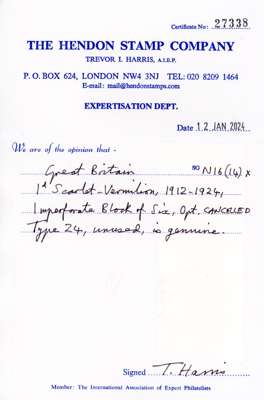 Certificate No: 27338
THE HENDON STAMP COMPANY
TREVOR I. HARRIS, A.I.E.P.
P. O. BOX 624, LONDON NW4 3NJ TEL: 020 8209 1464
E-mail: mail@hendonstamps.com
EXPERTISATION DEPT.
Date 12 JAN 2024
We are of the opinion that -
Great Britain SG N16(14)x
1d Scarlet-Vermilion, 1912-1924,
Imperforate Block of Six, Opt. CANCELLED
Type 24, unused, is genuine.
Signed T. Harris
Member: The International Association of Expert Philatelists